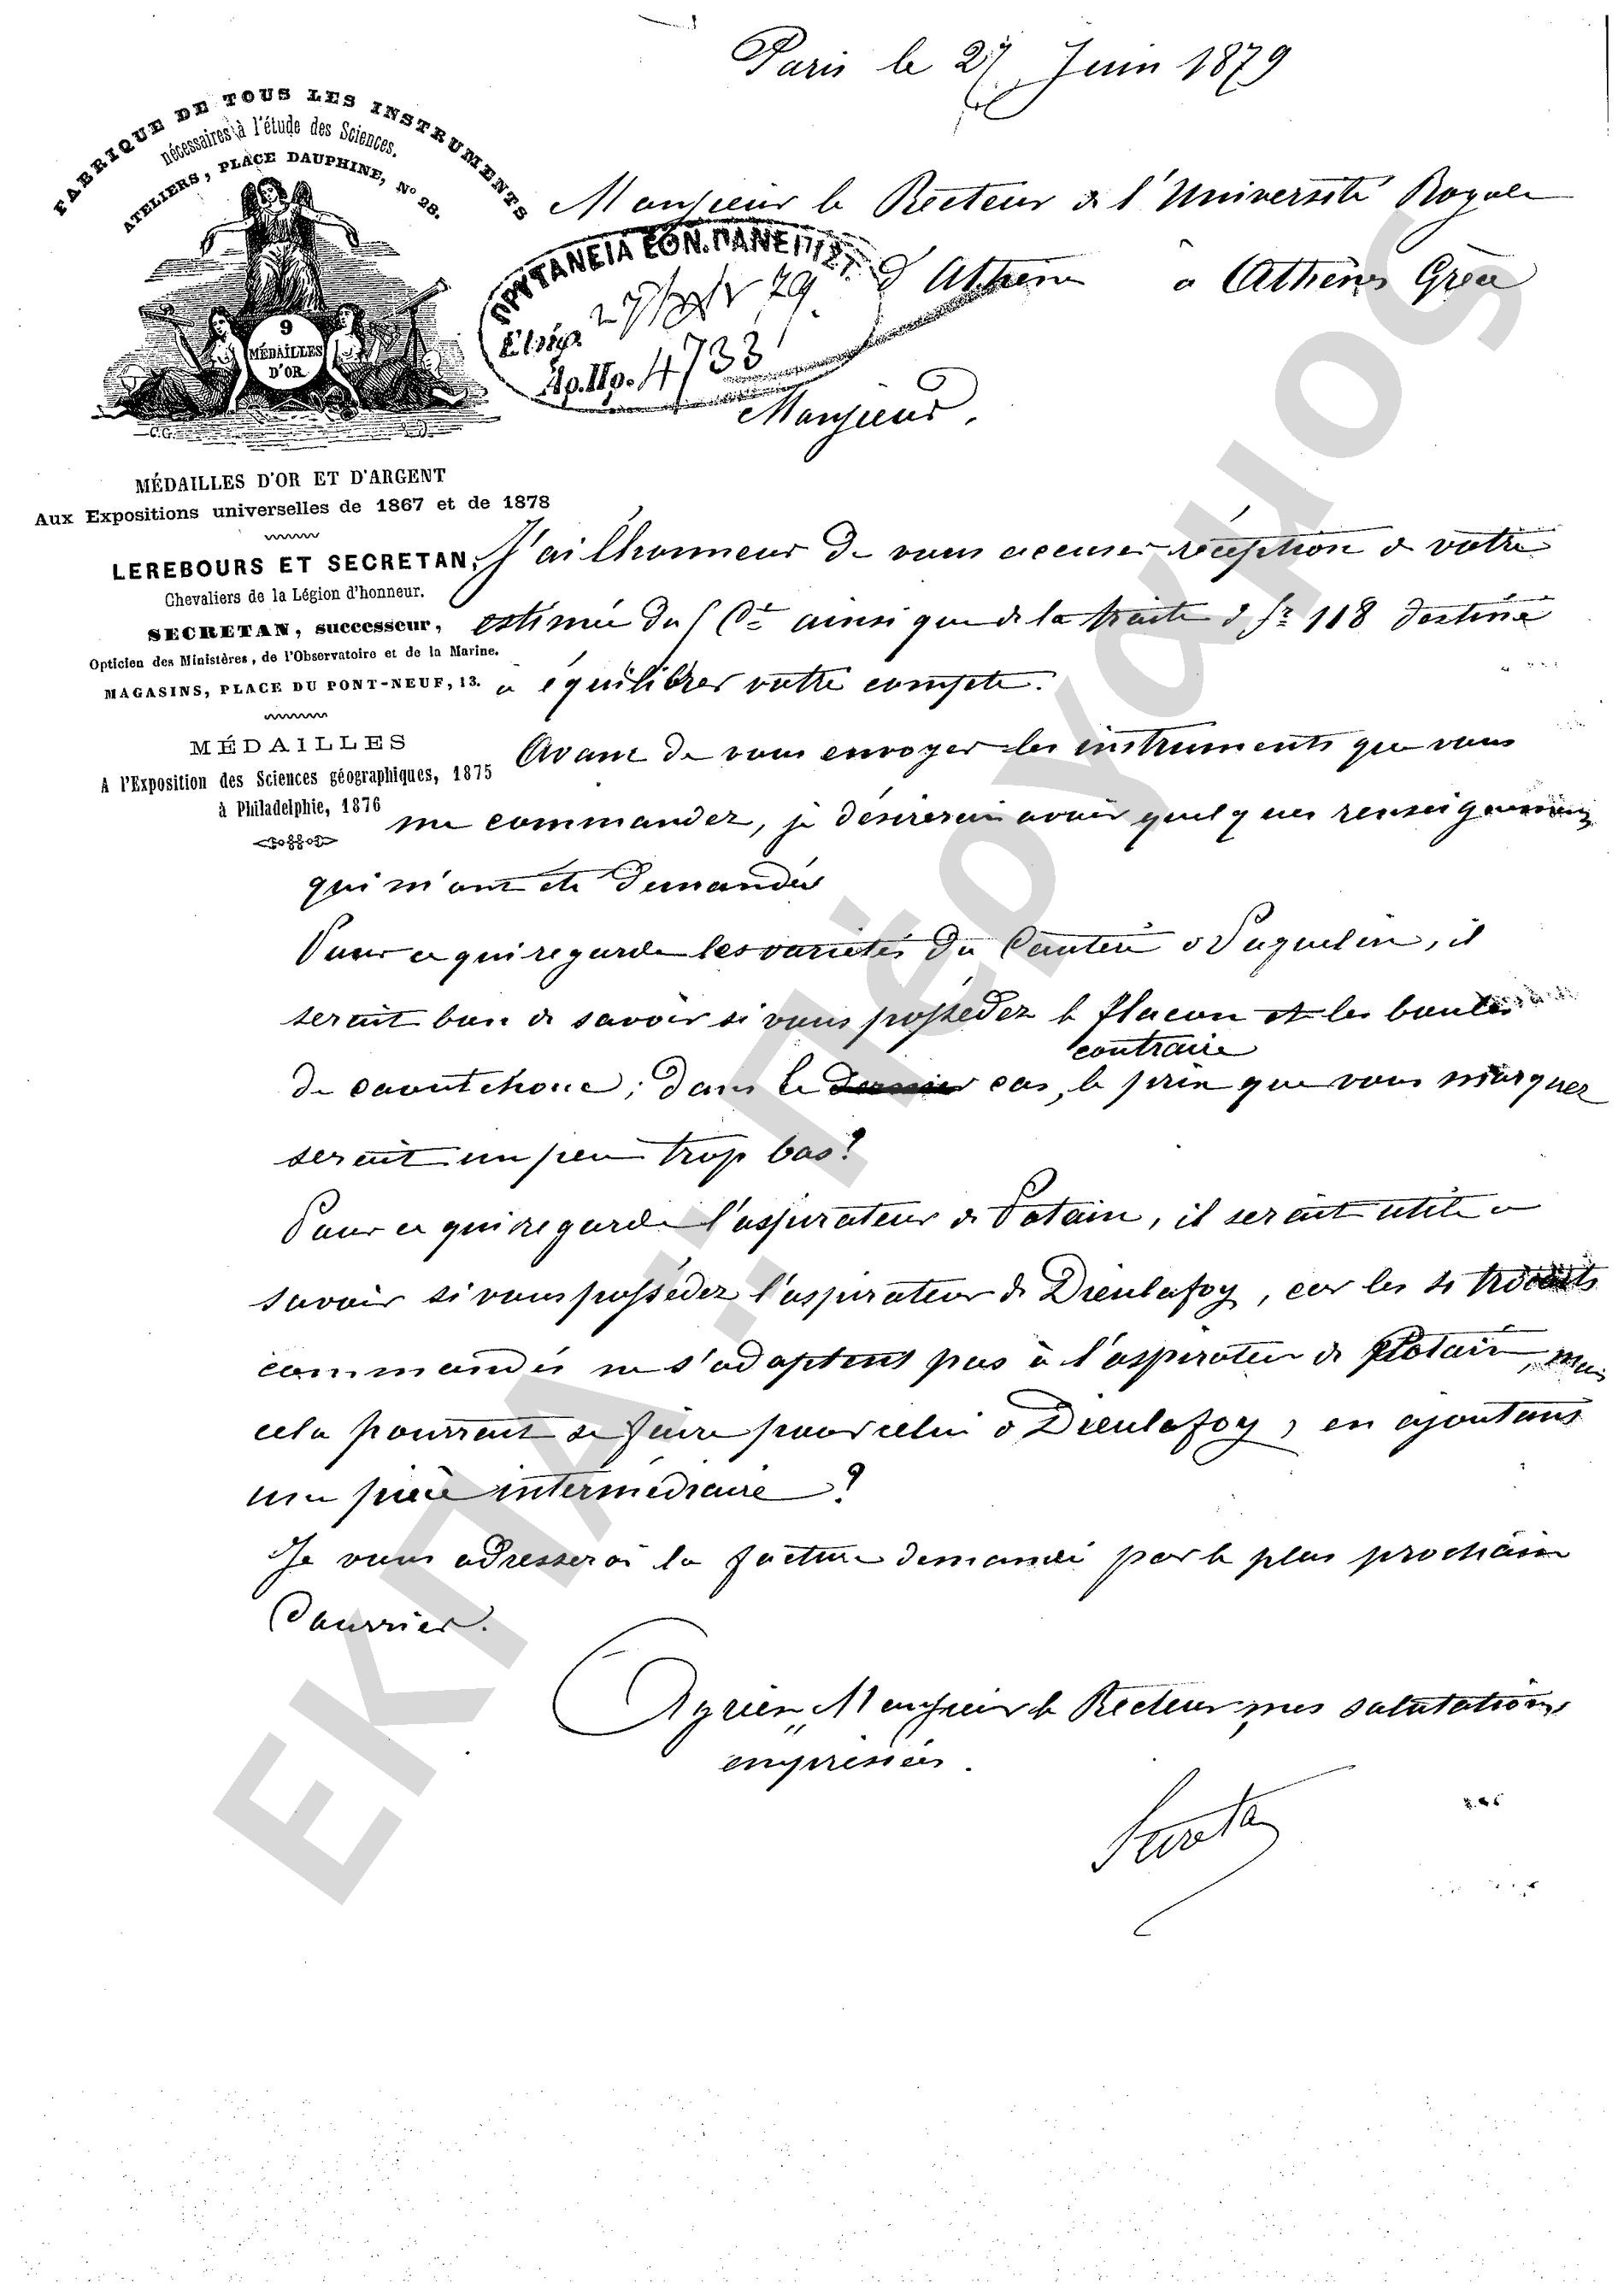 Paris le 27 Juin 1879
FABRIQUE DE TOUS LES INSTRUMENTS
nécessaires à l'étude des Sciences.
ATELIERS, PLACE DAUPHINE, N° 28.
9
MÉDAILLES
D'OR
Monsieur le Recteur de l'Université Royale
d'Athènes à Athènes Grèce
ΠΡΥΤΑΝΕΙΑ ΕΘΝ. ΠΑΝΕΠΙΣΤ.
27 79
Ἀρ.Πρ. 4733
Monsieur,
MÉDAILLES D'OR ET D'ARGENT
Aux Expositions universelles de 1867 et de 1878
LEREBOURS ET SECRETAN,
Chevaliers de la Légion d'honneur.
SECRETAN, successeur,
Opticien des Ministères, de l'Observatoire et de la Marine.
MAGASINS, PLACE DU PONT-NEUF, 13.
MÉDAILLES
A l'Exposition des Sciences géographiques, 1875
à Philadelphie, 1876
J'ai l'honneur de vous accuser réception de votre
estimée du 5 Ct ainsi que de la traite de fr 118 destinée
à équilibrer votre compte.
Avant de vous envoyer les instruments que vous
me commandez, je désirerais avoir quelques renseignements
qui m'ont été demandés
Pour ce qui regarde les variétés du Cautère de Paquelin, il
serait bon de savoir si vous possédez le flacon et les boules
de caoutchouc; dans le contraire cas, le prix que vous marquez
serait un peu trop bas?
Pour ce qui regarde l'aspirateur de Potain, il serait utile de
savoir si vous possédez l'aspirateur de Dieulafoy, car les trocarts
commandés ne s'adaptent pas à l'aspirateur de Potain, mais
cela pourrait se faire pour celui de Dieulafoy, en ajoutant
une pièce intermédiaire?
Je vous adresserai la facture demandée par le plus prochain
Courrier.
Agréez, Monsieur le Recteur, mes salutations
empressées.
Secretan
ΕΚΠΑ: Πέργαμος